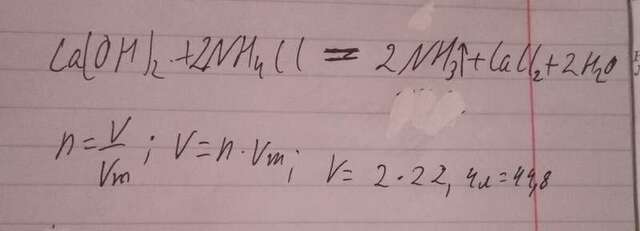 Ca(OH)₂ + 2NH₄Cl = 2NH₃↑ + CaCl₂ + 2H₂O
n = V/Vm ; V = n · Vm ; V = 2 · 22,4л = 44,8